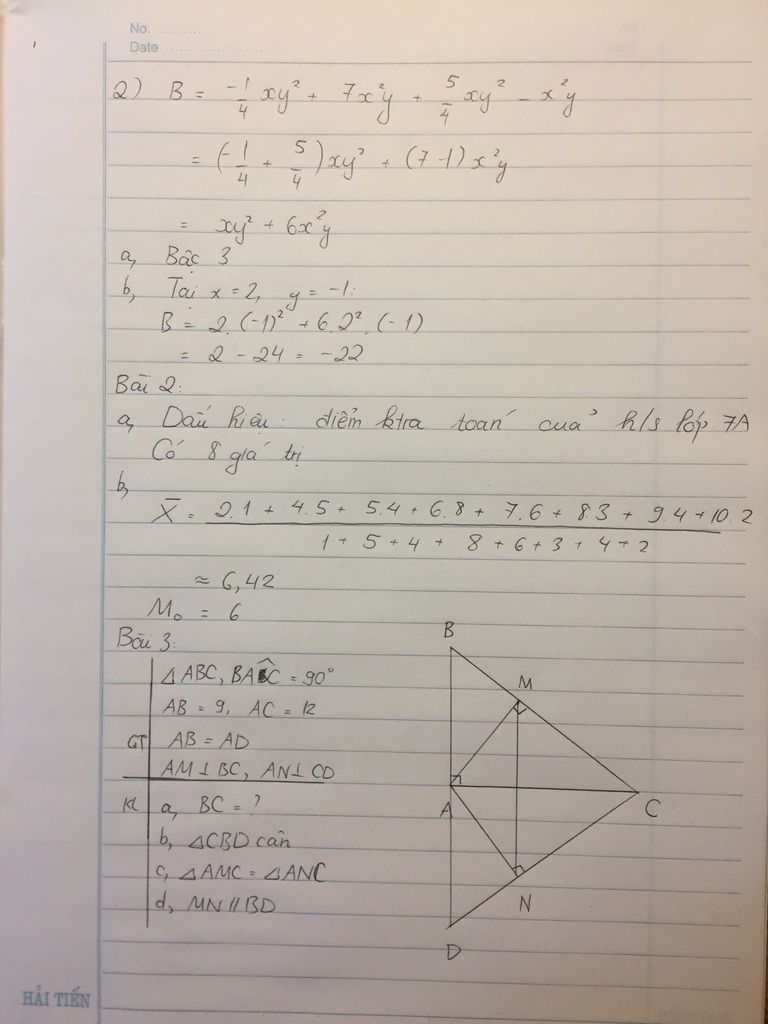 No. ............
Date ........................
2) B = -1/4 xy² + 7x²y + 5/4 xy² - x²y
= (-1/4 + 5/4)xy² + (7-1)x²y
= xy² + 6x²y
a, Bậc 3
b, Tại x = 2, y = -1:
B = 2.(-1)² + 6.2².(-1)
= 2 - 24 = -22
Bài 2:
a, Dấu hiệu: điểm ktra toán của h/s lớp 7A
Có 8 giá trị
b,
X̄ = (2.1 + 4.5 + 5.4 + 6.8 + 7.6 + 8.3 + 9.4 + 10.2)/(1 + 5 + 4 + 8 + 6 + 3 + 4 + 2)
≈ 6,42
M₀ = 6
Bài 3:
△ABC, BÂC = 90°
AB = 9, AC = 12
GT AB = AD
AM ⊥ BC, AN ⊥ CD
KL a, BC = ?
b, △CBD cân
c, △AMC = △ANC
d, MN // BD
B
M
A
C
N
D
HẢI TIẾN